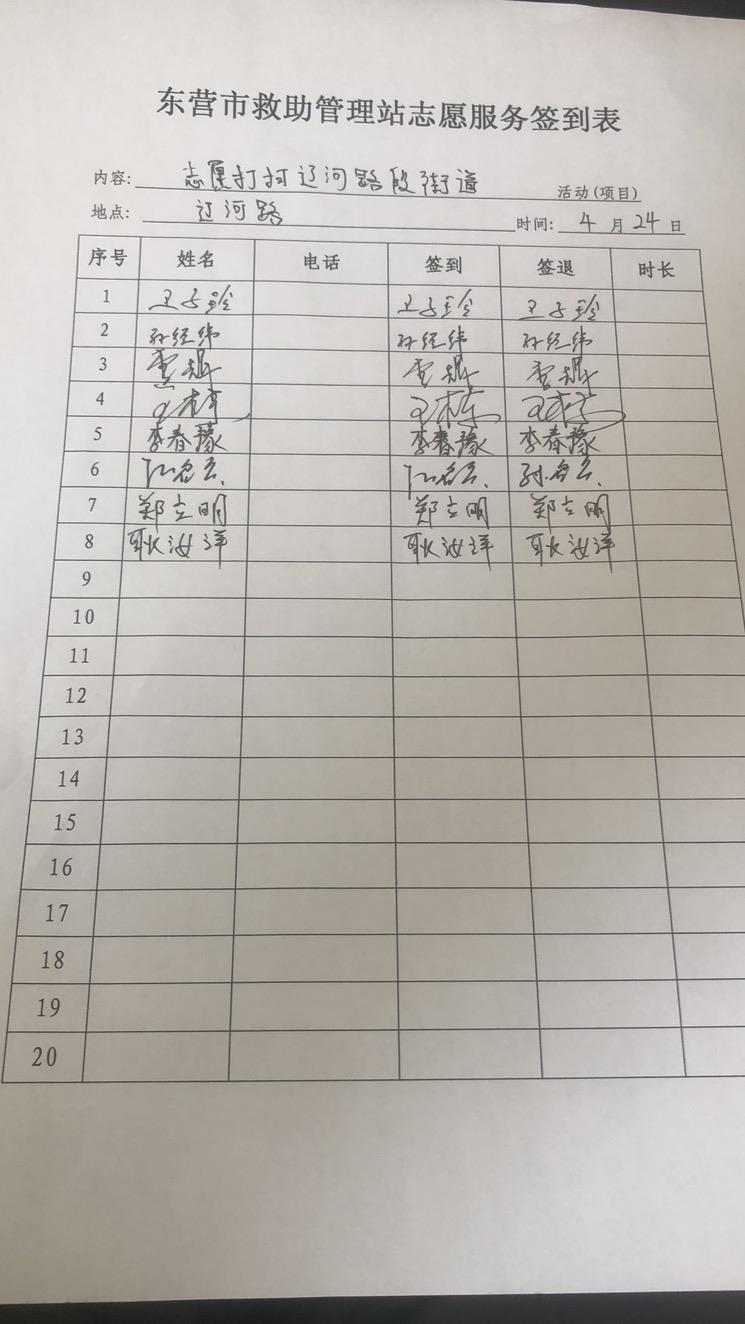 东营市救助管理站志愿服务签到表
内容: 志愿打扫辽河路段街道 活动(项目)
地点: 辽河路 时间: 4 月 24 日
序号 姓名 电话 签到 签退 时长
1 卫子玲 卫子玲 卫子玲
2 孙经纬 孙经纬 孙经纬
3
4
5 李春豫 李春豫 李春豫
6
7 郑立明 郑立明 郑立明
8 耿汝洋 耿汝洋 耿汝洋
9
10
11
12
13
14
15
16
17
18
19
20